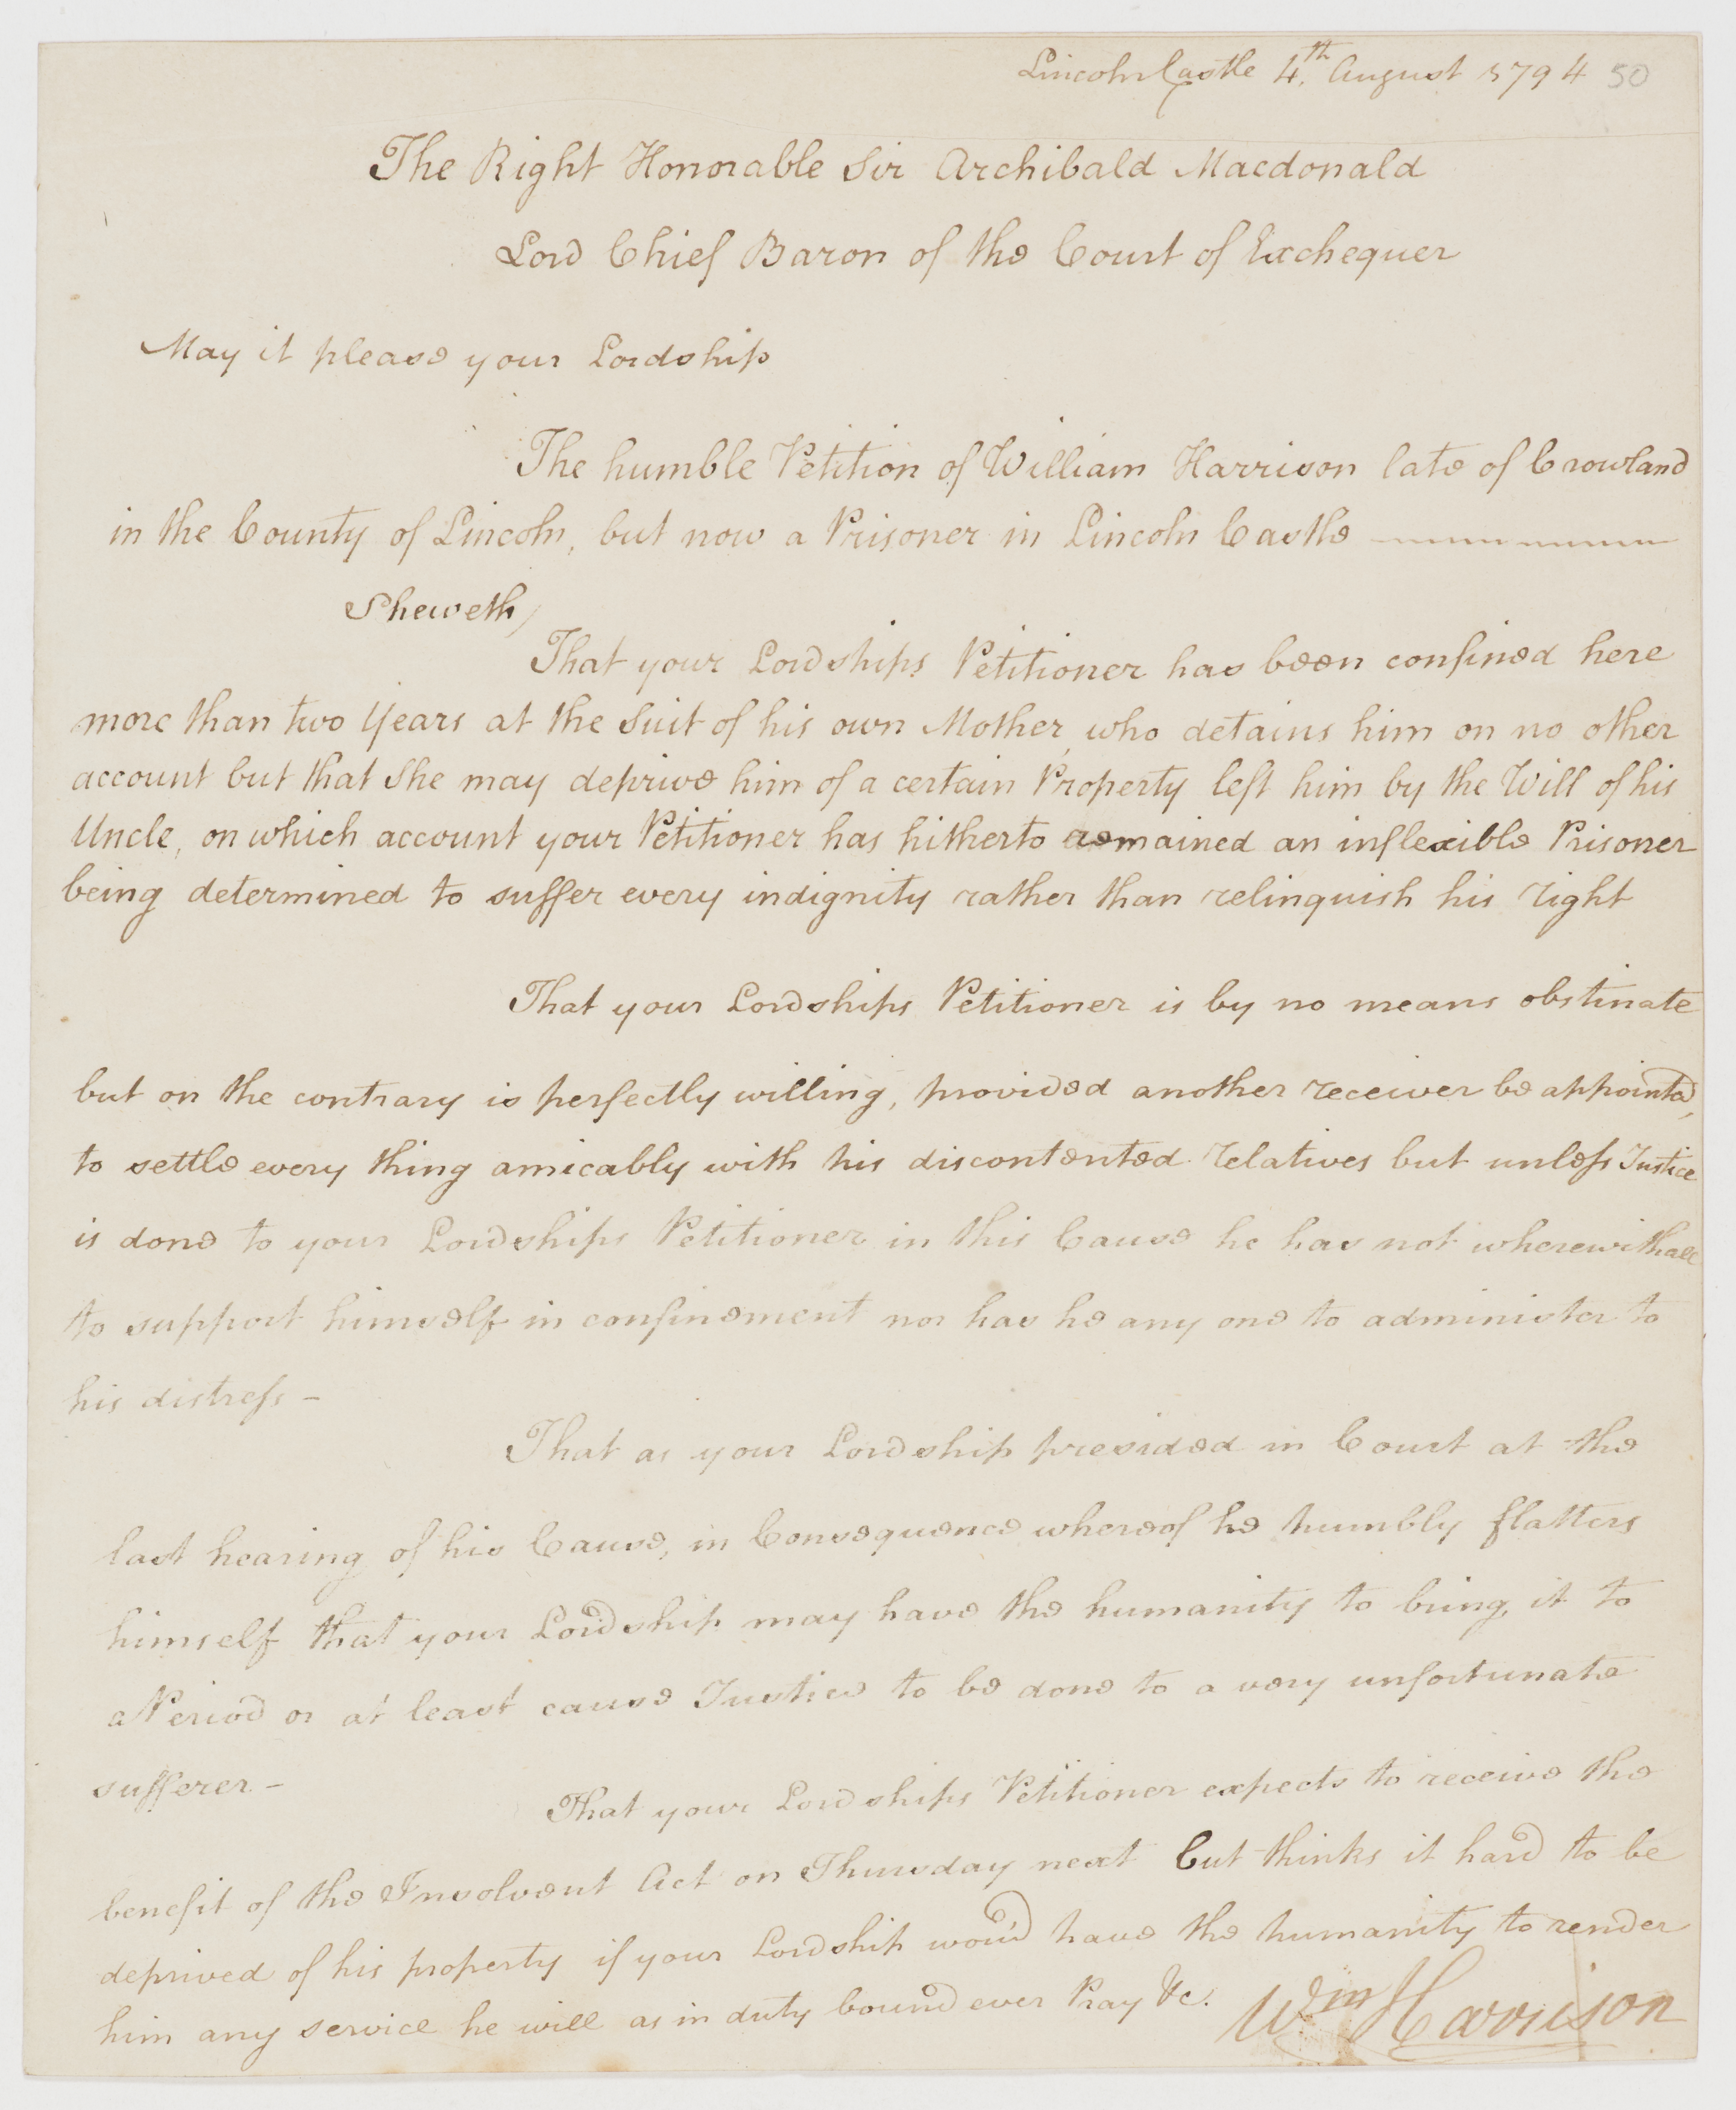 Lincoln Castle 4th August 1794 50
The Right Honorable Sir Archibald Macdonald
Lord Chief Baron of the Court of Exchequer
May it please your Lordship
The humble Petition of William Harrison late of Crowland
in the County of Lincoln, but now a Prisoner in Lincoln Castle
Sheweth,
That your Lordships Petitioner has been confined here
more than two Years at the Suit of his own Mother, who detains him on no other
account but that She may deprive him of a certain Property left him by the Will of his
Uncle, on which account your Petitioner has hitherto remained an inflexible Prisoner
being determined to suffer every indignity rather than relinquish his right
That your Lordships Petitioner is by no means obstinate
but on the contrary is perfectly willing, provided another receiver be appointed,
to settle every thing amicably with his discontented relatives but unless Justice
is done to your Lordships Petitioner in this Cause he has not wherewithall
to support himself in confinement nor has he any one to administer to
his distress -
That as your Lordship presided in Court at the
last hearing of his Cause, in Consequence whereof he humbly flatters
himself that your Lordship may have the humanity to bring it to
a Period or at least cause Justice to be done to a very unfortunate
sufferer -
That your Lordships Petitioner expects to receive the
benefit of the Insolvent Act on Thursday next but thinks it hard to be
deprived of his property if your Lordship wou'd have the humanity to render
him any service he will as in duty bound ever Pray &c. Wm Harrison